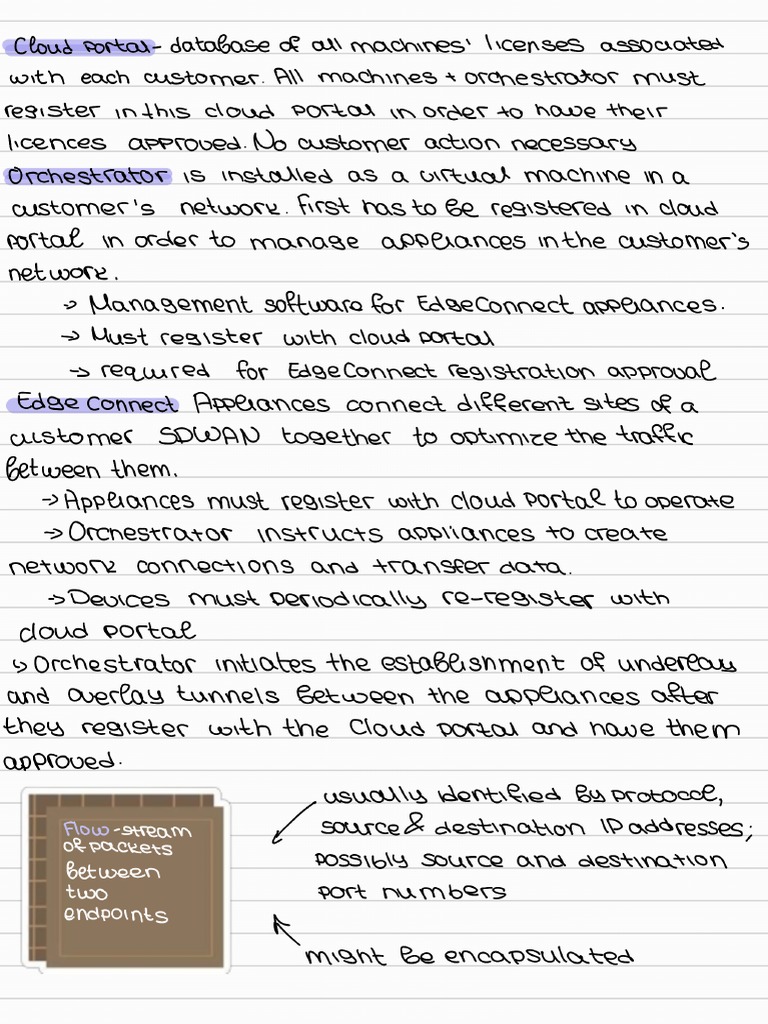 Cloud Portal- database of all machines' licenses associated
with each customer. All machines + orchestrator must
register in this cloud portal in order to have their
licences approved. No customer action necessary
Orchestrator is installed as a virtual machine in a
customer's network. First has to be registered in cloud
portal in order to manage appliances in the customer's
network.
→ Management software for EdgeConnect appliances.
→ Must register with cloud portal
→ required for EdgeConnect registration approval
Edge Connect Appliances connect different sites of a
customer SDWAN together to optimize the traffic
between them.
→ Appliances must register with cloud portal to operate
→ Orchestrator instructs appliances to create
network connections and transfer data.
→ Devices must periodically re-register with
cloud portal
↳ Orchestrator initiates the establishment of underlay
and overlay tunnels between the appliances after
they register with the Cloud portal and have them
approved.
Flow - stream
of packets
between
two
endpoints
usually identified by protocol,
source & destination IP addresses;
possibly source and destination
port numbers
might be encapsulated